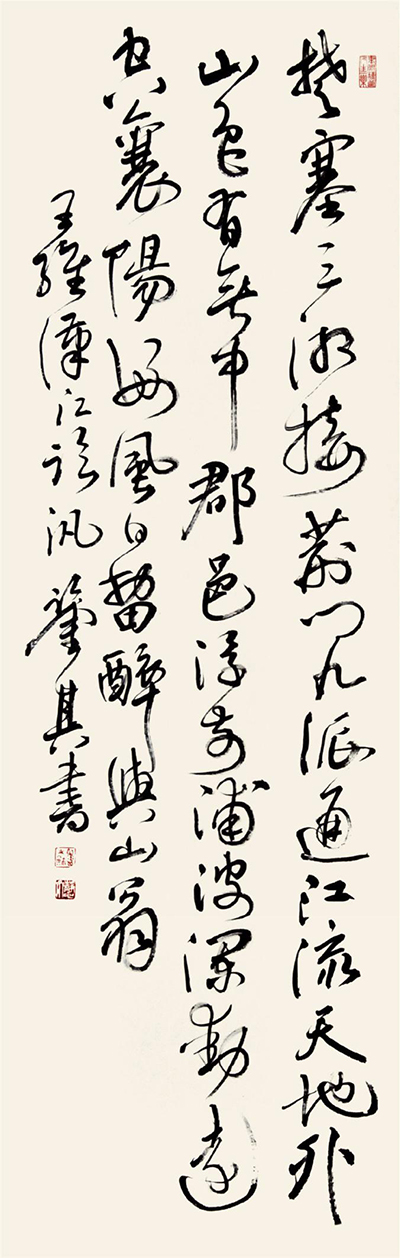 楚塞三湘接荊門九派通江流天地外
山色有無中郡邑浮前浦波瀾動遠
空襄陽好風日留醉與山翁
王維漢江臨汎 其書